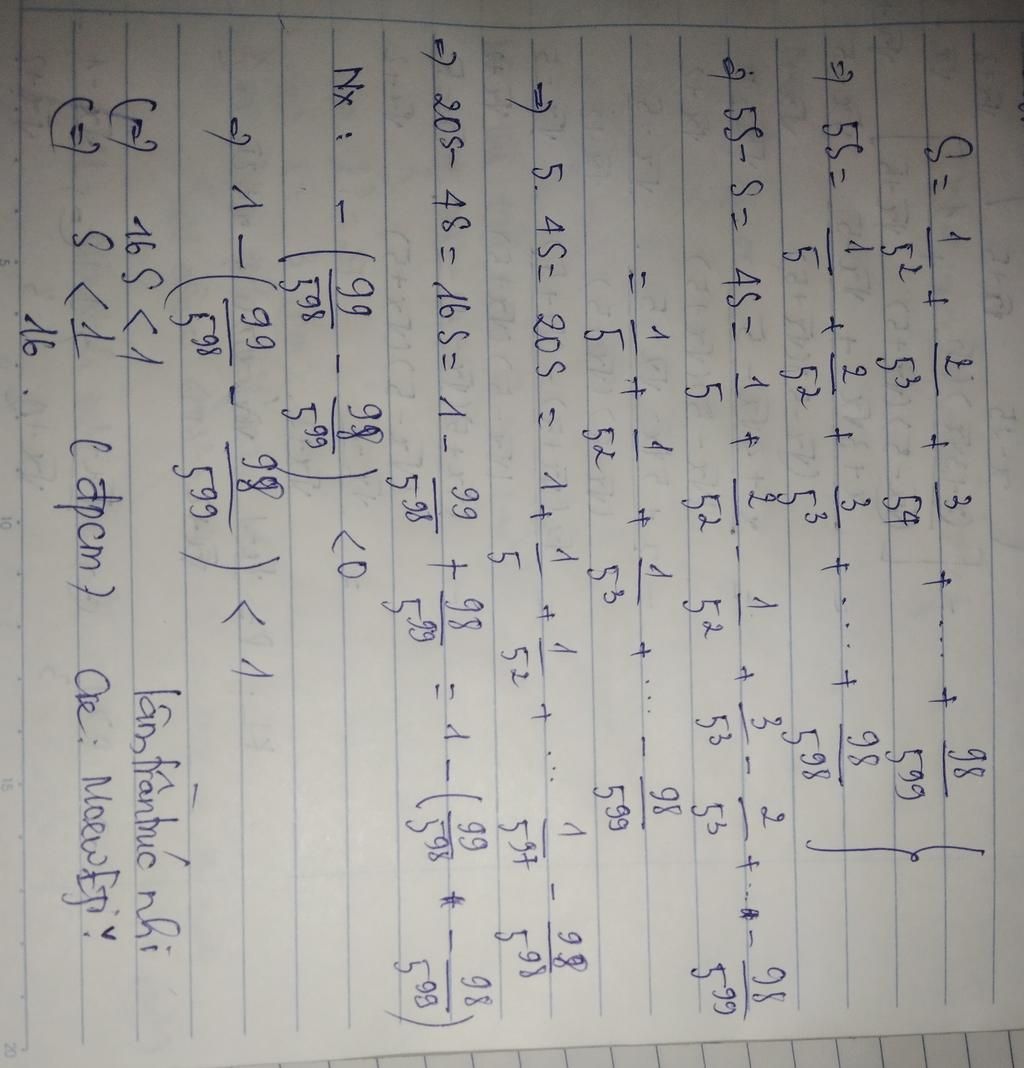 S = 1/5² + 2/5³ + 3/5⁴ + .... + 98/5⁹⁹
=> 5S = 1/5 + 2/5² + 3/5³ + .... + 98/5⁹⁸
=> 5S - S = 4S = 1/5 + 2/5² - 1/5² + 3/5³ - 2/5³ + ... - 98/5⁹⁹
= 1/5 + 1/5² + 1/5³ + .... - 98/5⁹⁹
=> 5. 4S = 20S = 1 + 1/5 + 1/5² + ... 1/5⁹⁷ - 98/5⁹⁸
=> 20S - 4S = 16S = 1 - 99/5⁹⁸ + 98/5⁹⁹ = 1 - (99/5⁹⁸ - 98/5⁹⁹)
Nx: - (99/5⁹⁸ - 98/5⁹⁹) < 0
=> 1 - (99/5⁹⁸ - 98/5⁹⁹) < 1
(=) 16S < 1
(=) S < 1/16 (đpcm)